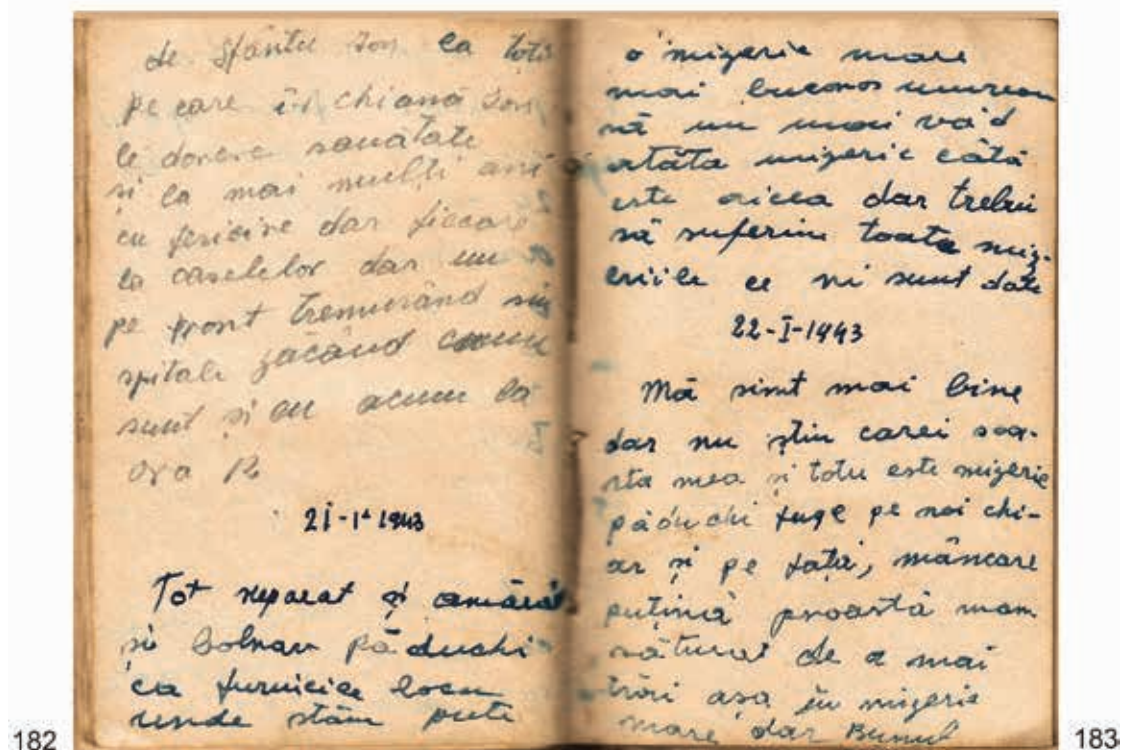 de Sfântu Ion la toți
pe care îi chiamă Ion
le doresc sanatate
și la mai mulți ani
cu fericire dar fiecare
la caselelor dar nu
pe front tremurând
spitale zăcând
sunt și eu acum la
ora
21-I-1943
Tot neparat și amărât
și bolnav păduchi
ca furnicile locu
unde stăm pute
182
o mizerie mare
mai bucoros muream
să nu mai văd
atâta mizerie câtă
este aicea dar trebui
să suferim toate miz-
eriile ce ni sunt date
22-I-1943
Mă simt mai bine
dar nu știu carei soa-
rta mea și totu este mizerie
păduchi fuge pe noi chi-
ar și pe față, mâncare
puțină proastă mam
săturat de a mai
trăi așa în mizerie
mare dar Bunul
183